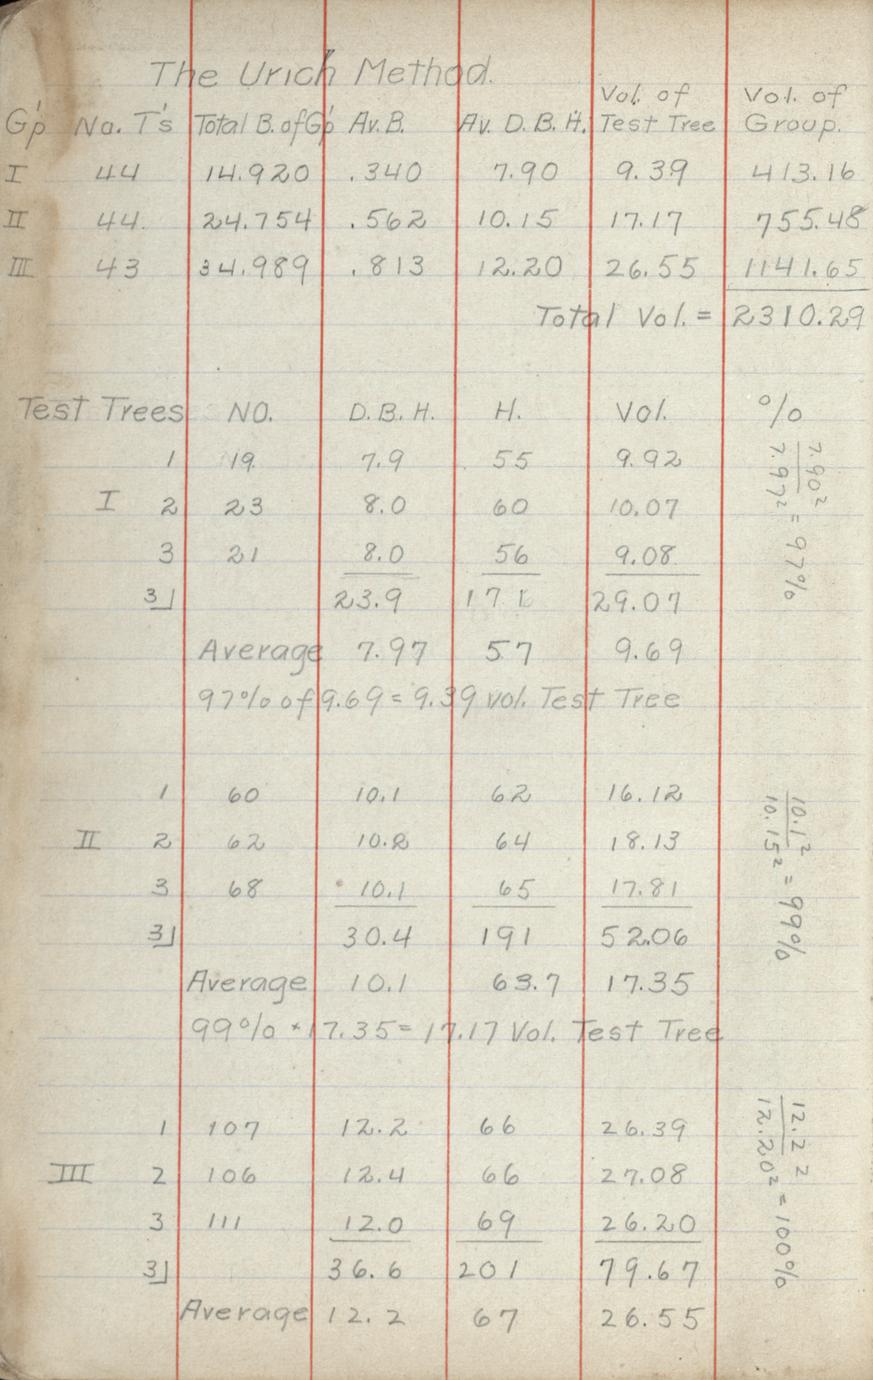 The Urich Method.
G'p No. T's Total B. of G'p Av. B. Av. D. B. H. Vol. of Test Tree Vol. of Group.
I 44 14.920 .340 7.90 9.39 413.16
II 44. 24.754 .562 10.15 17.17 755.48
III 43 34.989 .813 12.20 26.55 1141.65
Total Vol. = 2310.29
Test Trees NO. D. B. H. H. Vol. %
1 19 7.9 55 9.92
I 2 23 8.0 60 10.07
3 21 8.0 56 9.08
3 23.9 171 29.07
Average 7.97 57 9.69
97% of 9.69 = 9.39 vol. Test Tree
7.90² / 7.97² = 97%
1 60 10.1 62 16.12
II 2 62 10.2 64 18.13
3 68 10.1 65 17.81
3 30.4 191 52.06
Average 10.1 63.7 17.35
99% * 17.35 = 17.17 Vol. Test Tree
10.1² / 10.15² = 99%
1 107 12.2 66 26.39
III 2 106 12.4 66 27.08
3 111 12.0 69 26.20
3 36.6 201 79.67
Average 12.2 67 26.55
12.2² / 12.20² = 100%